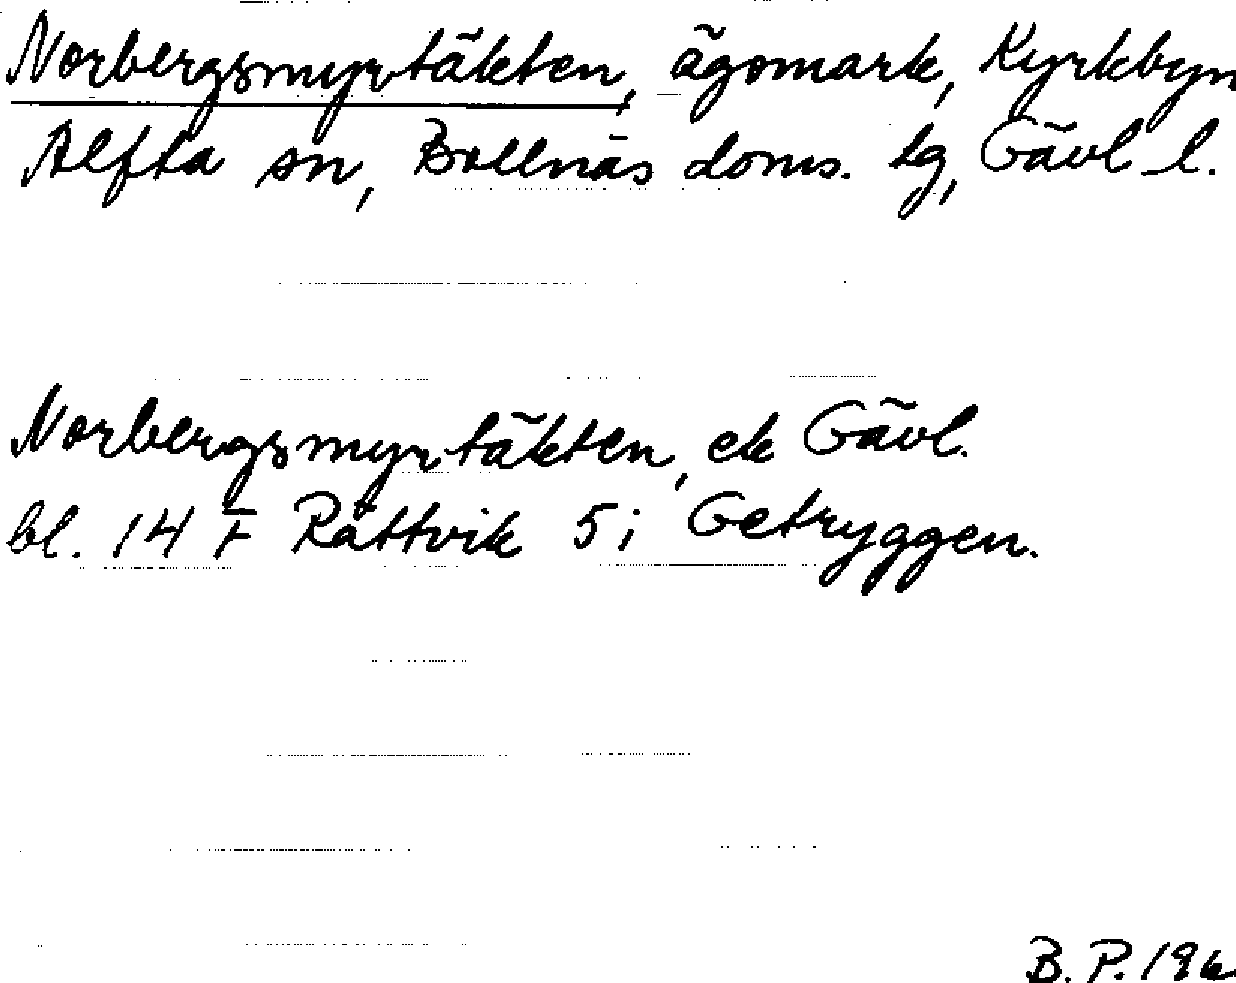 Norbergsmyrtäkten, ägomark, Kyrkbyn
Alfta sn, Bollnäs doms. tg, Gävl l.
Norbergsmyrtäkten, ek Gävl.
bl. 14 F Rättvik 5 i Getryggen.
B. P. 196